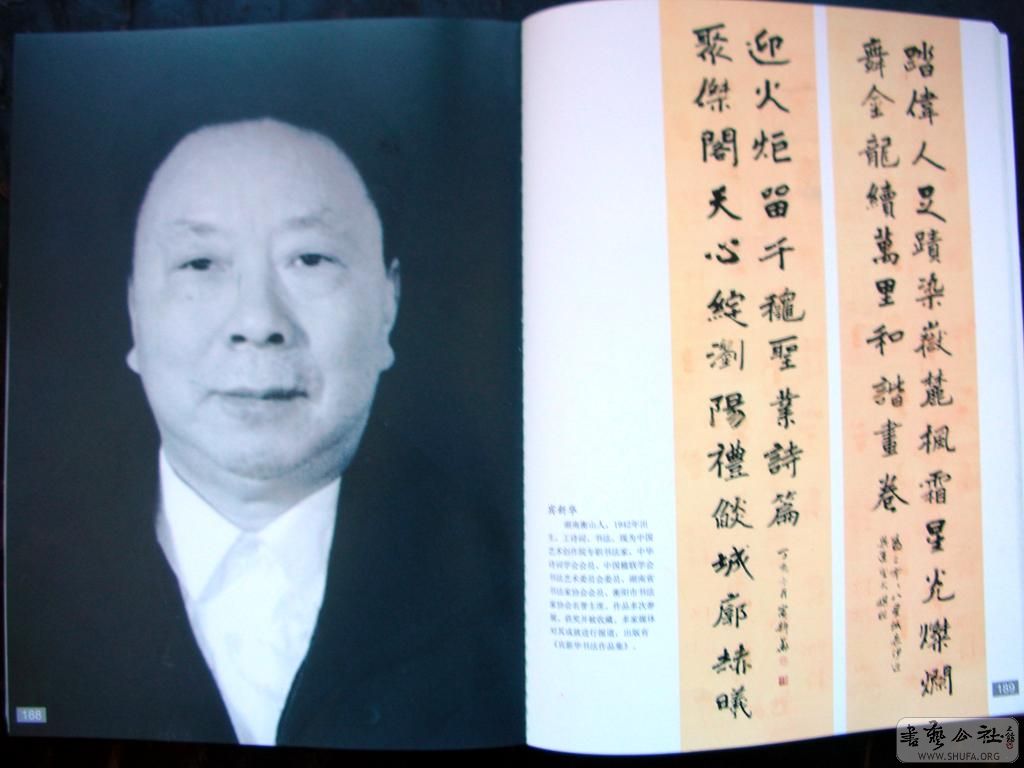 188
宾新华
湖南衡山人，1942年出
生。工诗词、书法。现为中国
艺术创作院专职书法家、中华
诗词学会会员、中国楹联学会
书法艺术委员会委员、湖南省
书法家协会会员、衡阳市书法
家协会名誉主席。作品多次参
展、获奖并被收藏，多家媒体
对其成就进行报道，出版有
《宾新华书法作品集》。
踏偉人足蹟染嶽麓楓霜星光燦爛
舞金龍續萬里和諧畫卷
迎火炬留千龝聖業詩篇
聚傑閣天心綻瀏陽禮燄城廓赫曦
189
書藝公社
WWW.SHUFA.ORG